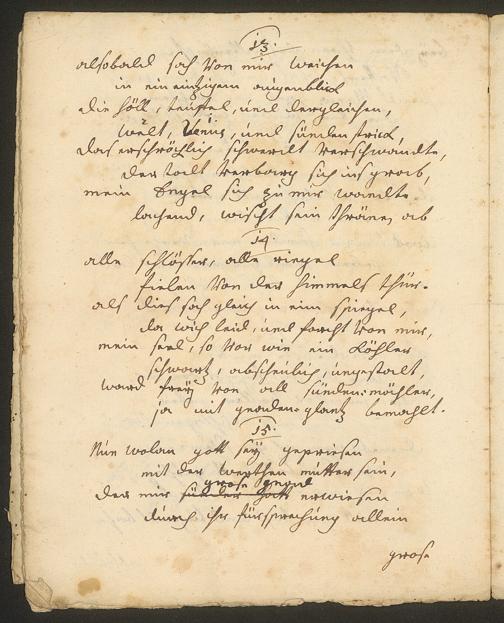 13.
alsobald sach von mir weichen
in ein einzigem augenblick
die höll, teuffel, und dergleichen,
welt, Venus, und sünden strick,
das erschröchlich schwerdt verschwandte,
der todt verbarg sich ins grab,
mein Engel sich zu mir wandte
lachend, wischt sein thränen ab
14.
alle schlösser, alle riegel
fielen von der himmels thür.
als dies sach gleich in eim spiegel,
da wich leid, und forcht von mir,
mein seel, so vor wie ein Köhler
schwartz, abscheulich, ungestalt,
ward freÿ von all sünden-mähler,
ja mit gnaden-glantz bemahlt.
15.
Nun wolan gott seÿ gepriesen
mit der werthen mutter sein,
grose gnad
der mir sünder hatt erwiesen
durch ihr fürsprechung allein
grose